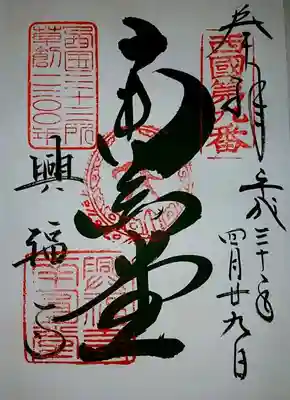 奉拝
西國第九番
平成三十年
四月廿九日
南円堂
西国三十三所
草創一三〇〇年
興福寺